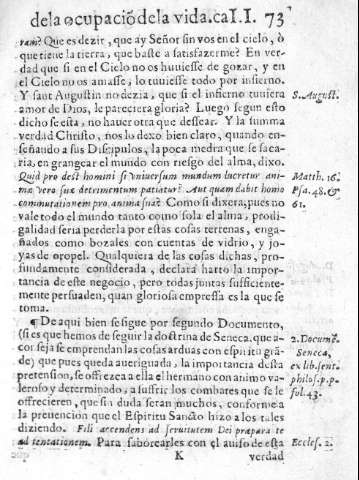 dela ocupaciõ dela vida.ca I. I. 73
ram? Que es dezir, que ay Señor sin vos en el cielo, ò
que tiene la tierra, que baste a satisfazerme? En ver-
dad que si en el Cielo no os huuiesse de gozar, y en
el Cielo no os amasse, lo tuuiesse todo por infierno.
Y sant Augustin no dezia, que si el infierno tuuiera
S. August.
amor de Dios, le pareciera gloria? Luego segun esto
dicho se esta, no hauer otra que dessear. Y la summa
verdad Christo, nos lo dexo bien claro, quando en-
señando a sus Discipulos, la poca medra que se saca-
ria, en grangear el mundo con riesgo del alma, dixo.
Quid pro dest homini si vniuersum mundum lucretur ani-
Matth. 16.
mæ vero suæ detrimentum patiatur? Aut quem dabit homo
Psa. 48. &
commutationem pro anima sua? Como si dixera, pues no
61.
vale todo el mundo tanto como sola el alma, prodi-
galidad seria perderla por estas cosas terrenas, enga-
ñados como bozales con cuentas de vidrio, y jo-
yas de oropel. Qualquiera de las cosas dichas, pro-
fundamente considerada, declara harto la impor-
tancia de este negocio, pero todas juntas sufficiente-
mente persuaden, quan gloriosa empressa es la que se
toma.
¶ De aqui bien se sigue por segundo Documento,
(si es que hemos de seguir la doctrina de Seneca, que a-
2. Documẽ.
cõseja se emprendan las cosas arduas con espiritu grã-
Seneca,
de) que pues queda aueriguada, la importancia desta
ex lib. sent.
pretension, se offrezca a ella el hermano con animo va-
philos. p. p.
leroso y determinado, a suffrir los combates que se le
fol. 43.
offrecieren, que sin duda seran muchos, conforme a
la preuencion que el Espiritu Sancto hizo a los tales
diziendo. Fili accendens ad seruitutem Dei præpara te
ad tentationem. Para saborearles con el auiso de esta
Eccles. 2.
K verdad